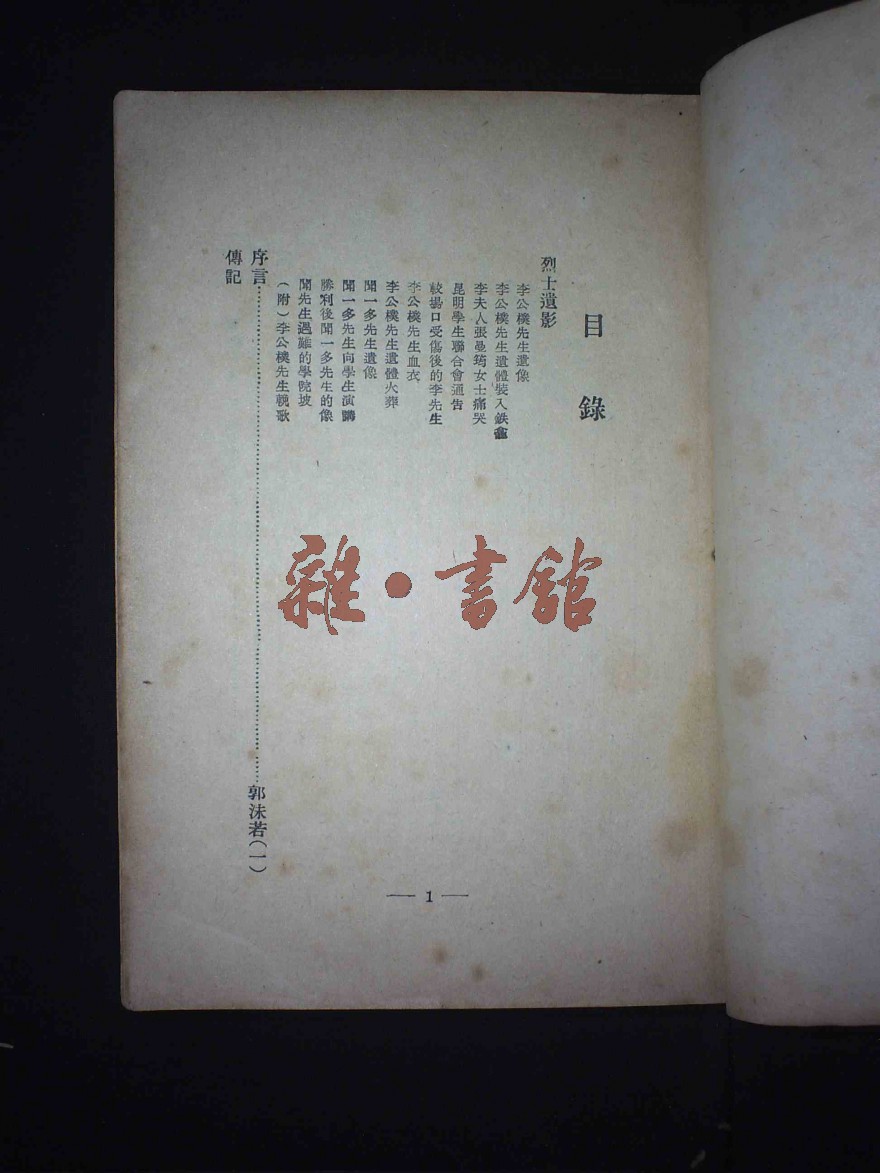 目錄
烈士遺影
李公樸先生遺像
李公樸先生遺體裝入鉄龕
李夫人張曼筠女士痛哭
昆明學生聯合會通告
較場口受傷後的李先生
李公樸先生血衣
李公樸先生遺體火葬
聞一多先生遺像
聞一多先生向學生演講
勝利後聞一多先生的像
聞先生遇難的學院坡
(附)李公樸先生輓歌
序言……郭沫若(一)
傳記
— 1 —
雜·書館